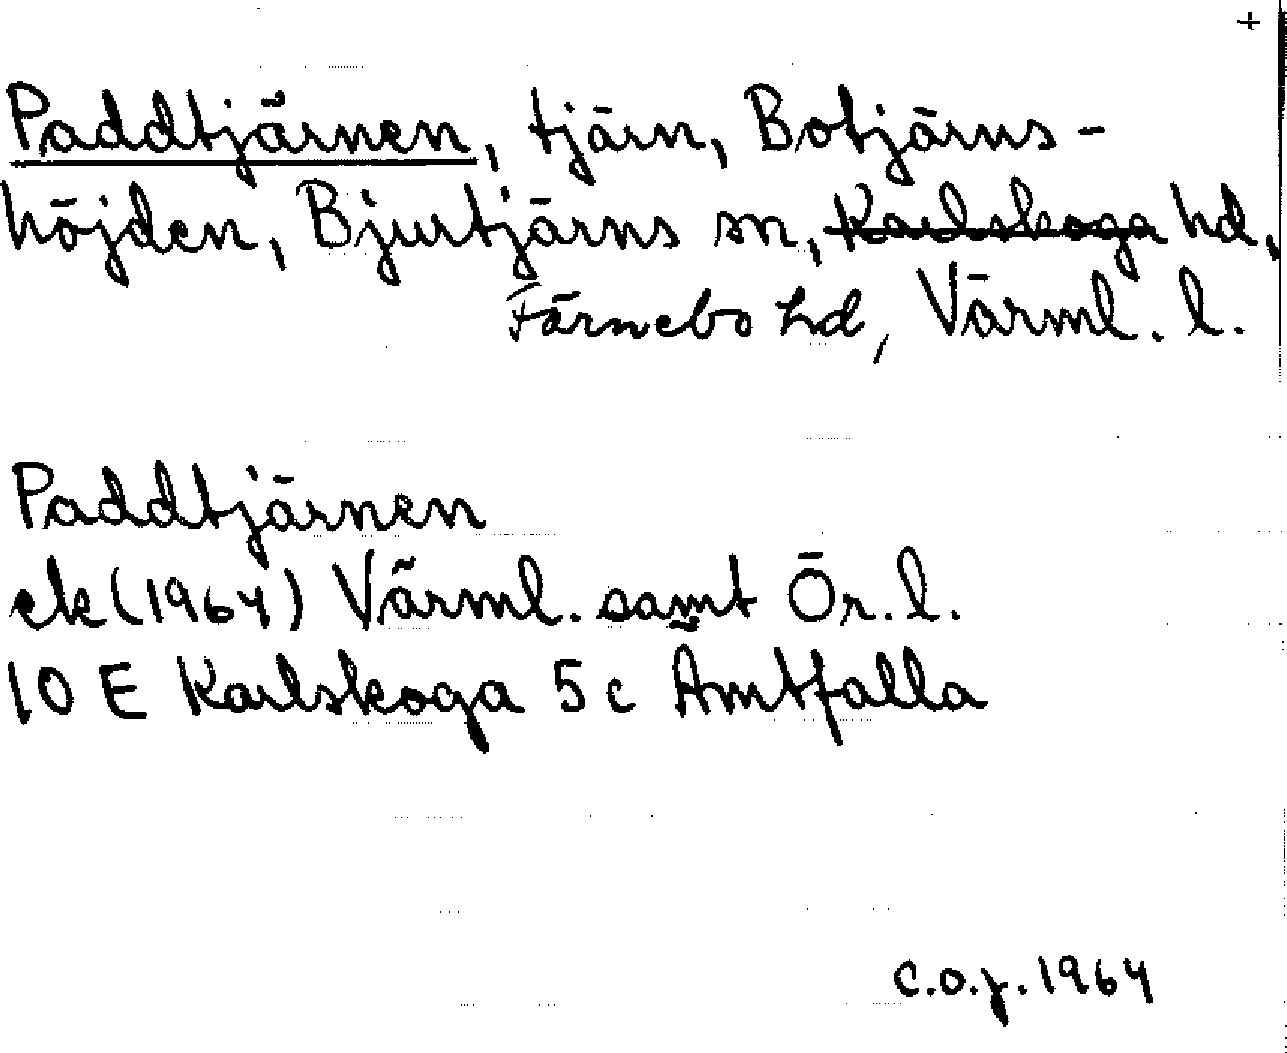 +
Paddtjärnen, tjärn, Botjärns-
höjden, Bjurtjärns sn, Karlskoga hd,
Färnebo hd, Värml. l.
Paddtjärnen
ek (1964) Värml. samt Ör. l.
10 E Karlskoga 5c Ämtfalla
C.O.J. 1964